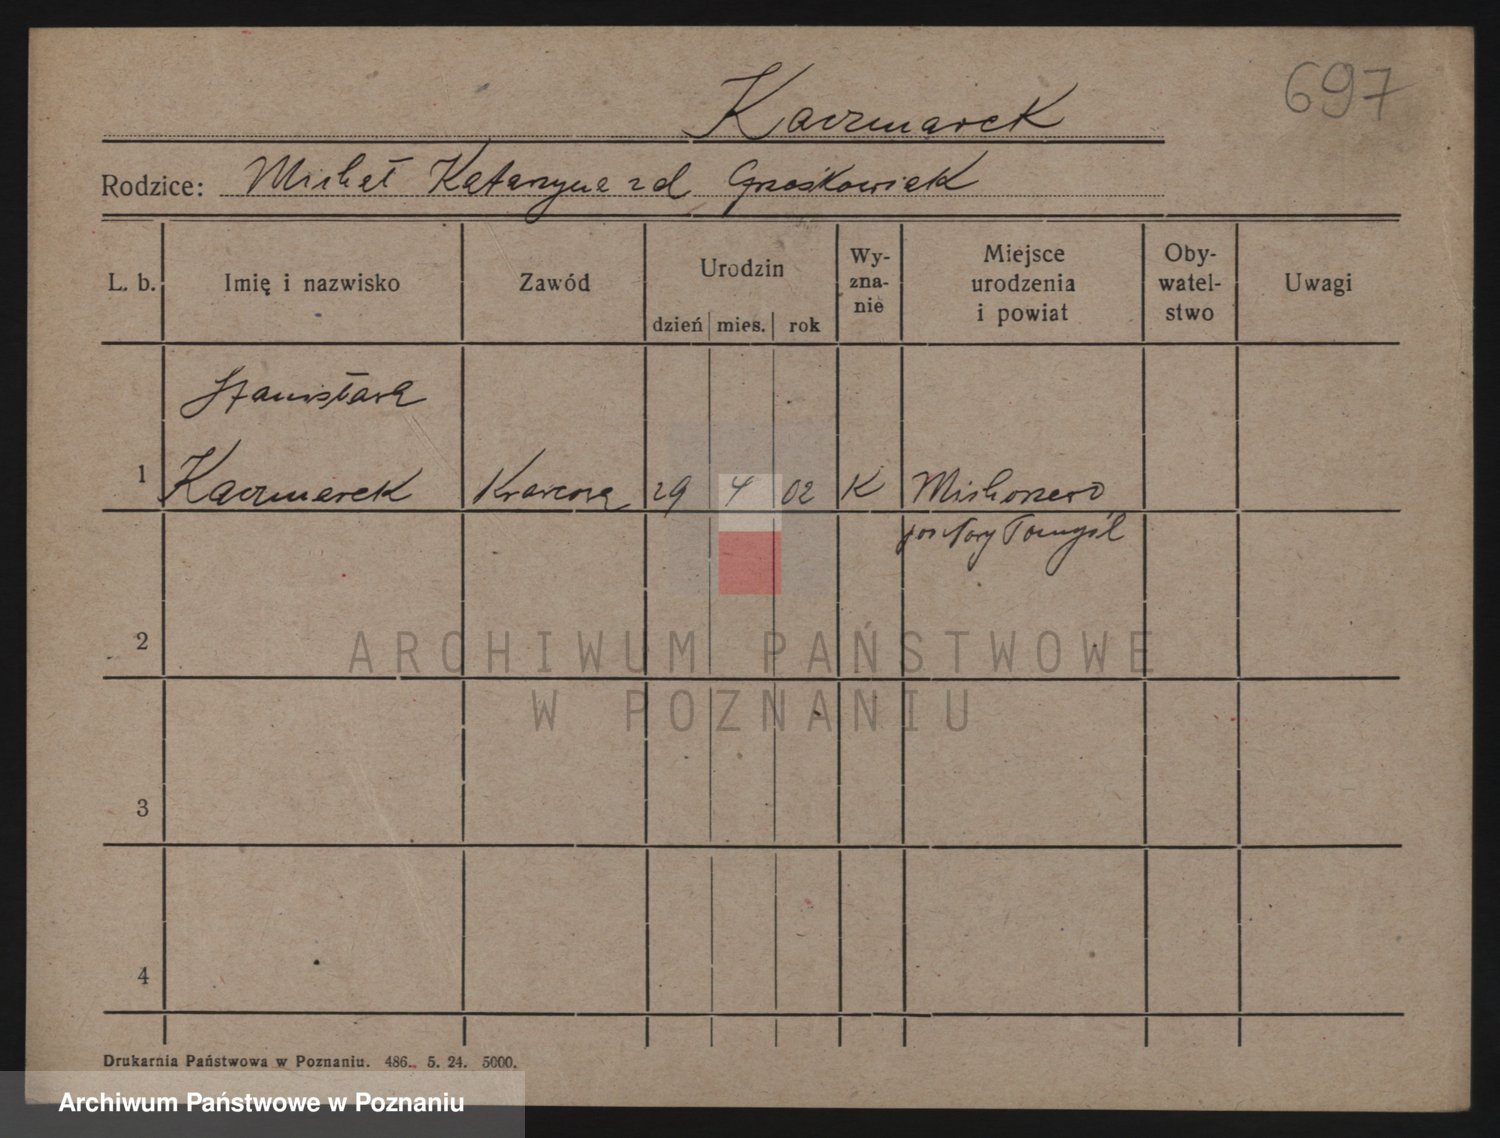 697
Kaczmarek
Rodzice: Michał Katarzyna zd Grześkowiak
L. b. Imię i nazwisko Zawód Urodzin dzień mies. rok Wy-zna-nie Miejsce urodzenia i powiat Oby-watel-stwo Uwagi
Stanisława
1 Kaczmarek Krawcowa 29 4 02 K Michorzewo
Nowy Tomyśl
2
ARCHIWUM PAŃSTWOWE
W POZNANIU
3
4
Drukarnia Państwowa w Poznaniu. 486. 5. 24. 5000.
Archiwum Państwowe w Poznaniu